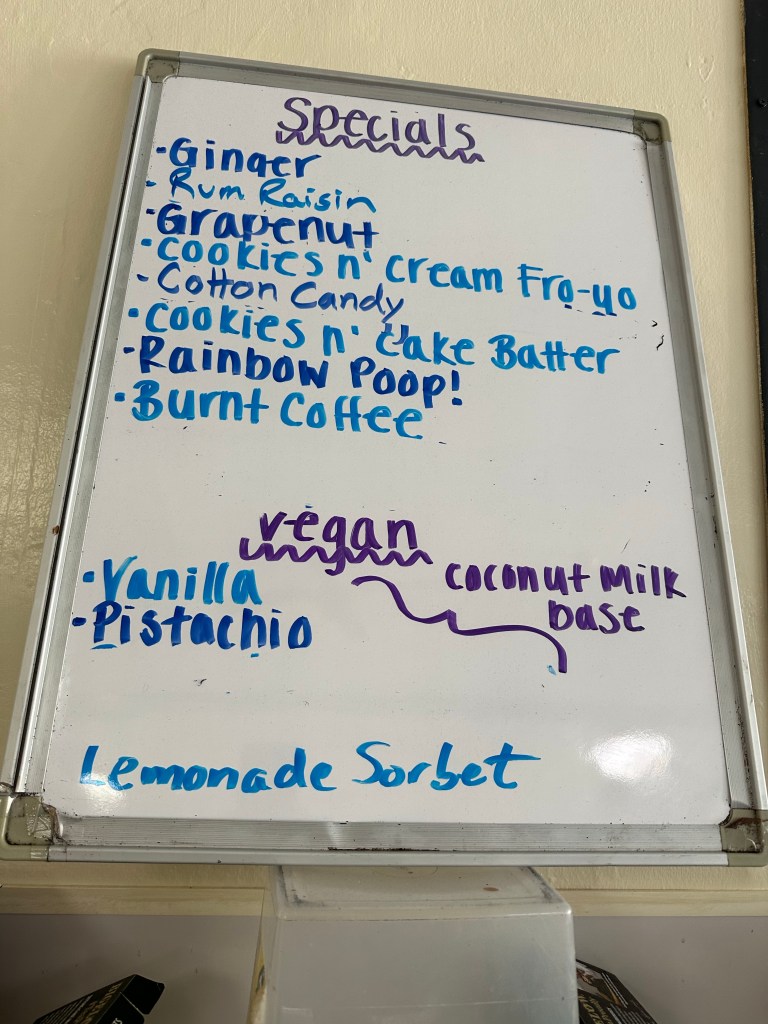 Specials
·Ginger
·Rum Raisin
·Grapenut
·Cookies n' Cream Fro-yo
·Cotton Candy
·Cookies n' Cake Batter
·Rainbow Poop!
·Burnt Coffee
vegan
·Vanilla
coconut milk
base
·Pistachio
Lemonade Sorbet